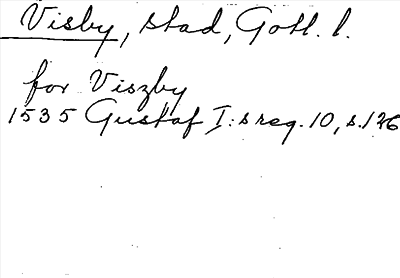 Visby, stad, Gotl. l.
for Viszby
1535 Gustaf I:s reg. 10, s. 126